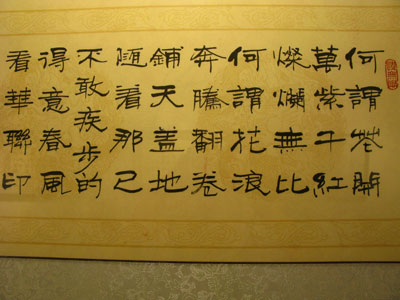 何謂花開
萬紫千紅
燦爛無比
何謂花浪
奔騰翻卷
鋪天盖地
隨着那已
不敢疾步的
得意春風
看華聯印